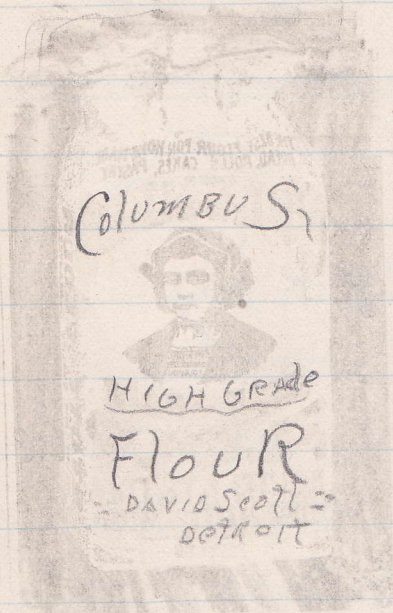 Columbus,
HIGH GRAde
FlouR
= DAVID Scott =
DETROIT